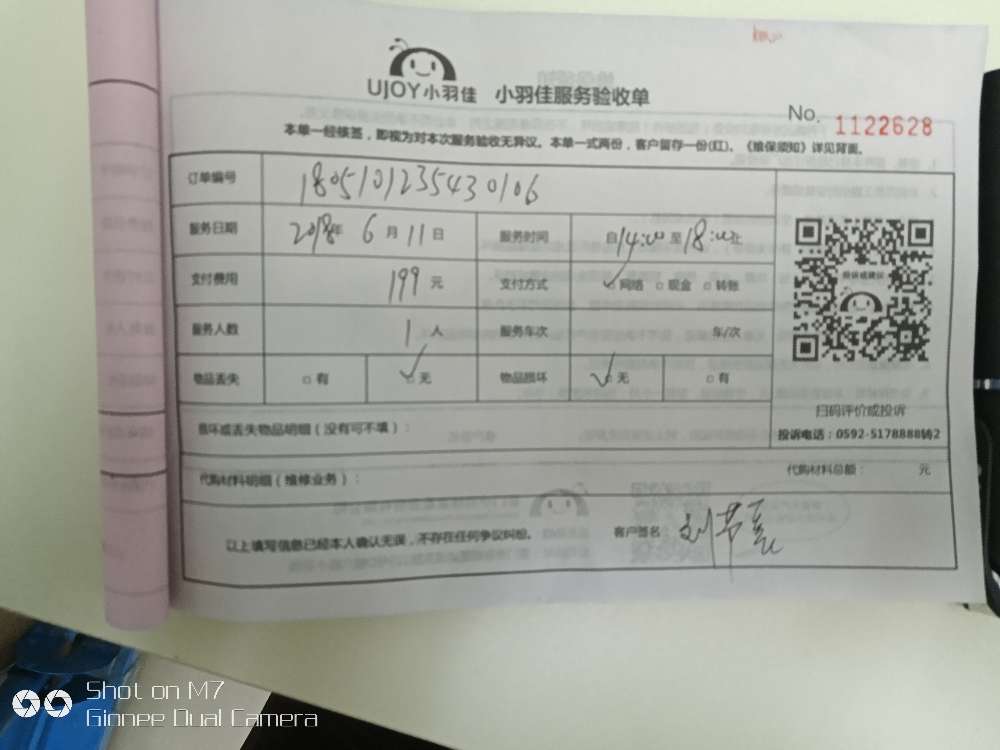 UJOY小羽佳 小羽佳服务验收单
No. 1122628
本单一经核签，即视为对本次服务验收无异议。本单一式两份，客户留存一份(红)。《维保须知》详见背面。
订单编号 180510123543 0106
服务日期 2018年 6 月 11 日 服务时间 自14:00至18:00止
支付费用 199 元 支付方式 ✓网络 □现金 □转账
服务人数 1 人 服务车次 车/次
物品丢失 □有 ✓无 物品损坏 ✓无 □有
投诉或建议
扫码评价或投诉
投诉电话：0592-5178888转2
损坏或丢失物品明细（没有可不填）：
代购材料明细（维修业务）： 代购材料总额： 元
以上填写信息已经本人确认无误，不存在任何争议纠纷。 客户签名
Shot on M7
Gionee Dual Camera